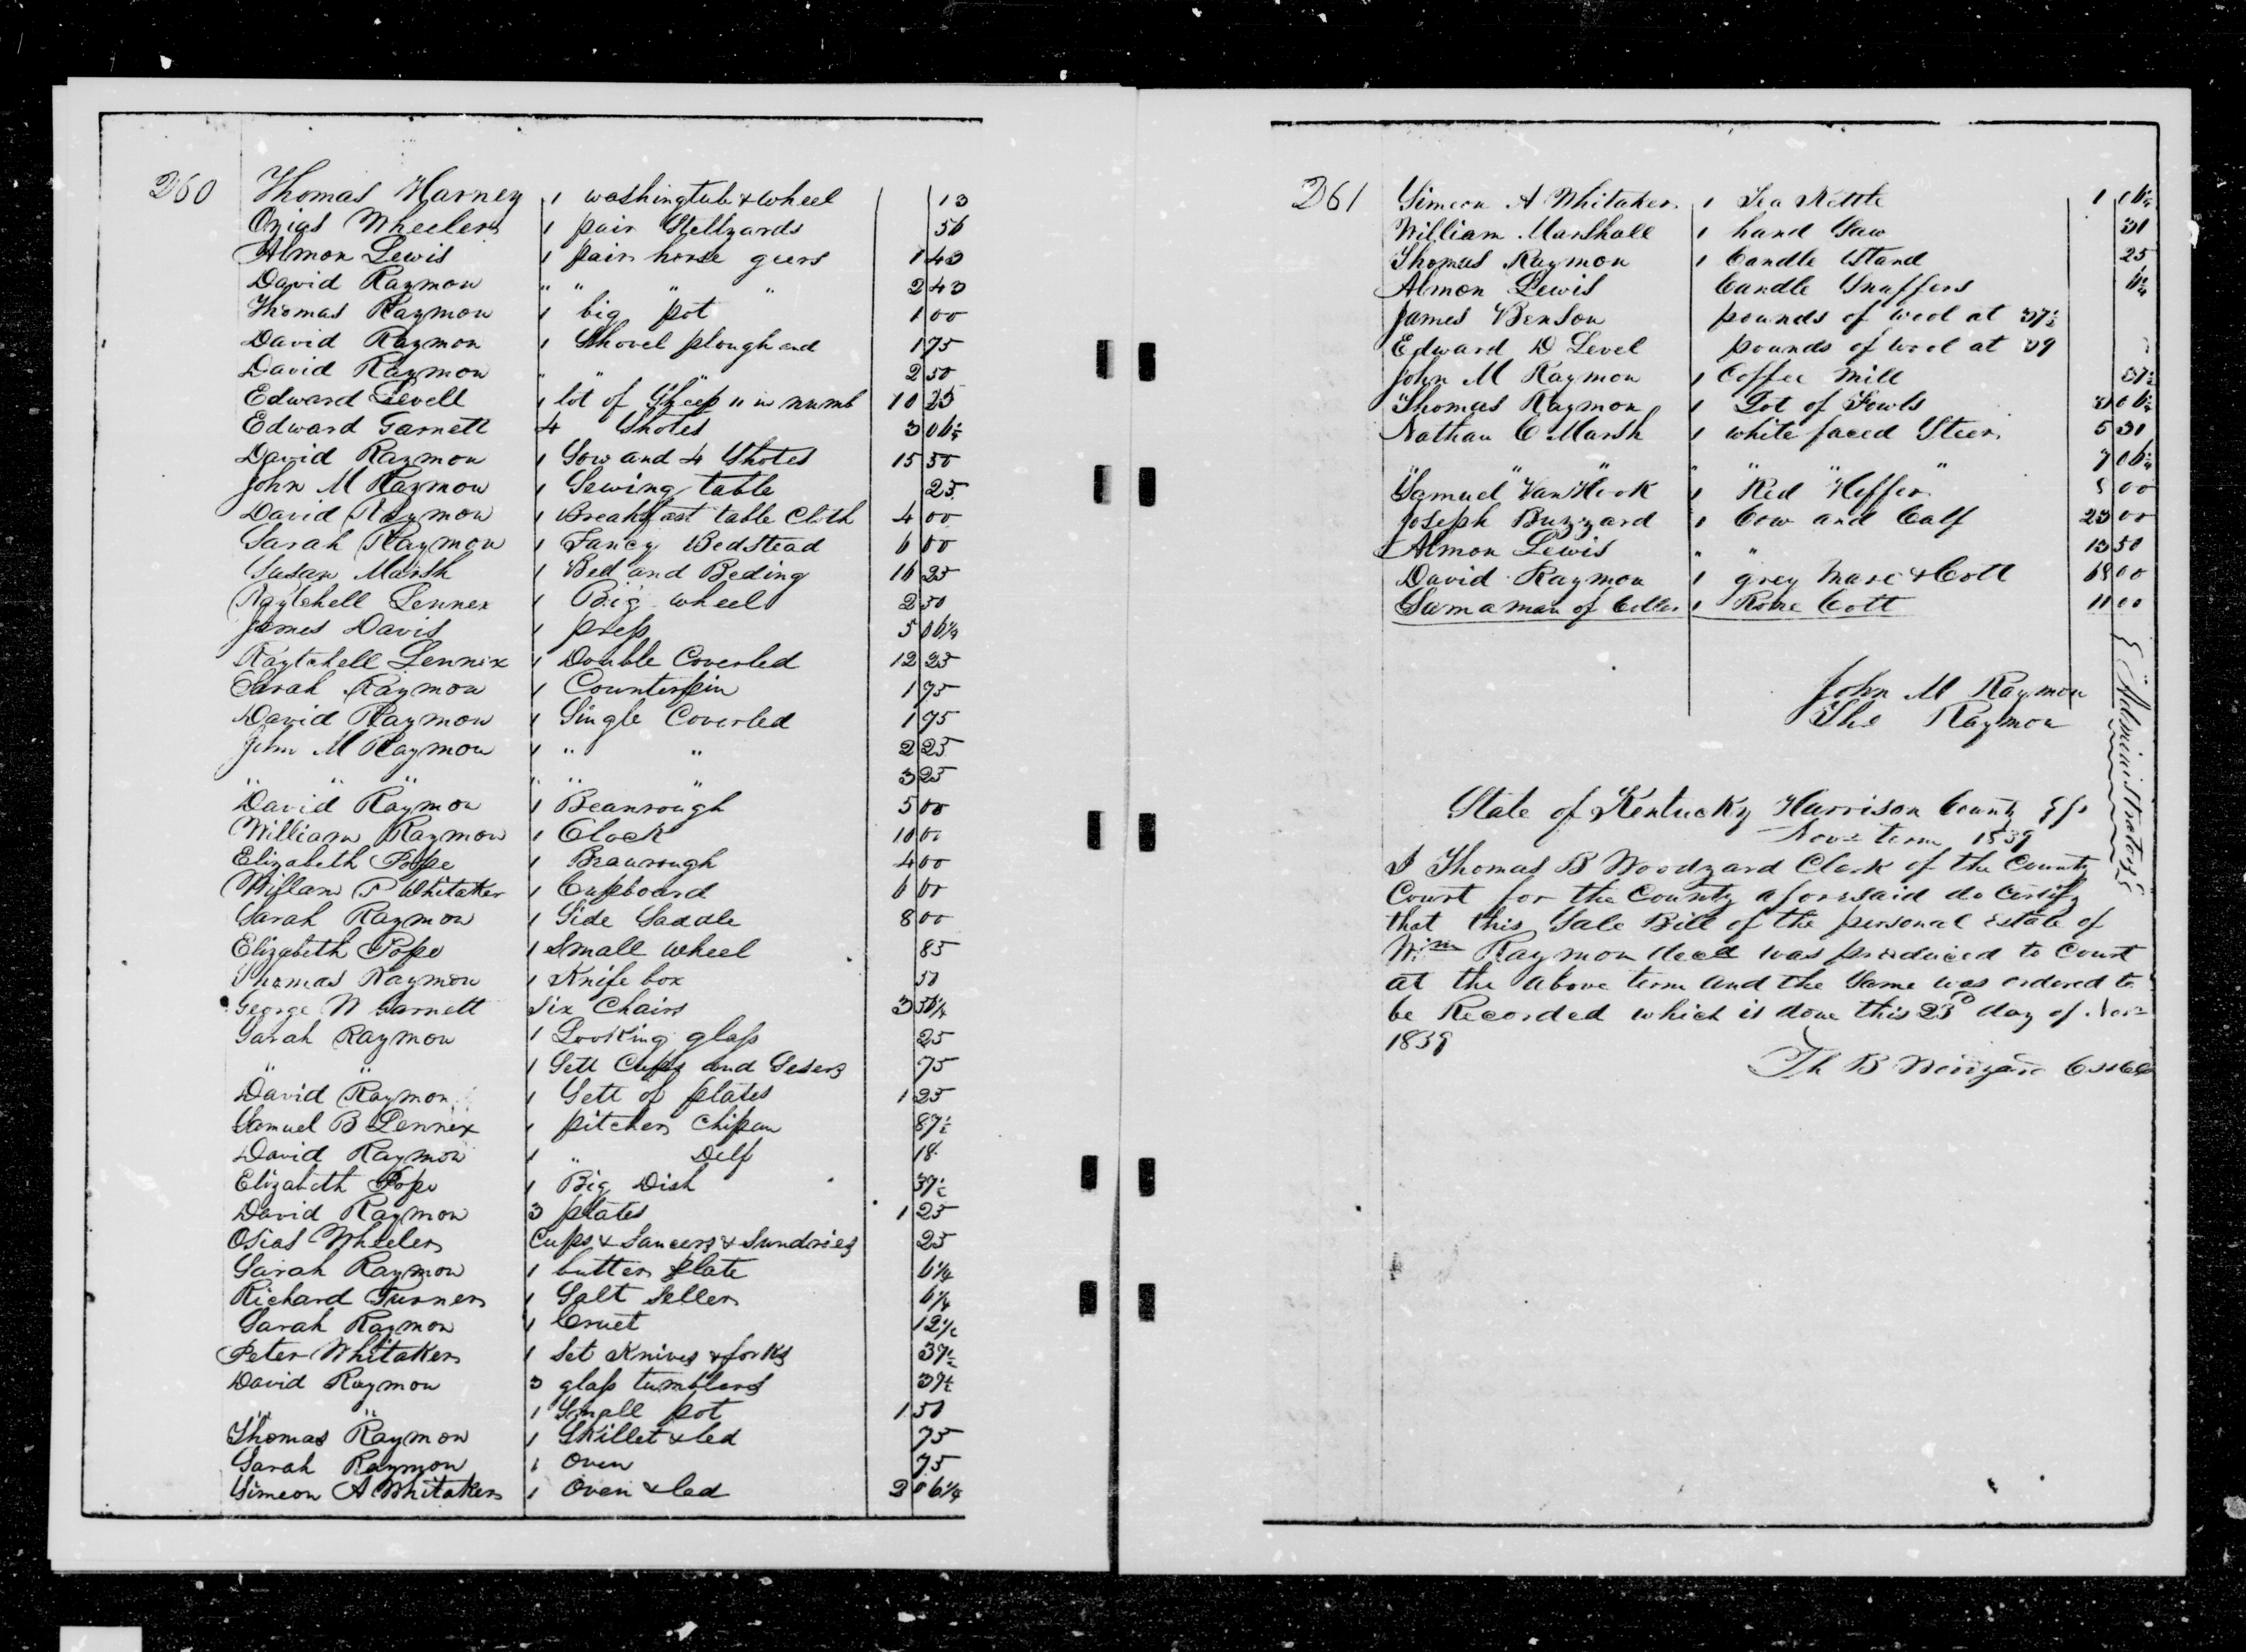 260 Thomas Harney 1 washingtub & wheel 13
Ozias Wheeler 1 pair Stellyards 56
Almon Lewis 1 pair horse geers 1 43
David Raymon " " " " 2 43
Thomas Raymon 1 big pot 1 00
David Raymon 1 Shovel plough and 1 75
David Raymon " " " 2 50
Edward Levell 1 lot of Sheep 11 in numb 10 25
Edward Garnett 4 Shotes 3 06¼
David Raymon 1 Sow and 4 Shotes 15 50
John M Raymon 1 Sewing table 25
David Raymon 1 Breakfast table Cloth 4 00
Sarah Raymon 1 Fancy Bedstead 6 00
Susan Marsh 1 Bed and Beding 16 25
Raytchell Lennex 1 Big wheel 2 50
James Davis 1 press 5 06¼
Raytchell Lennix 1 Double Coverled 12 25
Sarah Raymon 1 Counterpin 1 75
David Raymon 1 Single Coverled 1 75
John M Raymon 1 " " 2 25
" " " " " " 3 25
David Raymon 1 Beanrough 5 00
William Raymon 1 Clock 10 00
Elizabeth Pope 1 Beaurough 4 00
William P Whitaker 1 Cupboard 6 00
Sarah Raymon 1 Side Saddle 8 00
Elizabeth Pope 1 Small wheel 85
Thomas Raymon 1 Knife box 50
George N Garnett Six Chairs 3 56¼
Sarah Raymon 1 Looking glass 25
" " 1 Sett Cups and Sesers 75
David Raymon 1 Sett of plates 1 25
Samuel B Lennex 1 pitcher Chipan 87½
David Raymon 1 " Delf 18
Elizabeth Pope 1 Big Dish 37½
David Raymon 3 plates 1 25
Osias Wheeler Cups & Saucers & Sundries 25
Sarah Raymon 1 butter plate 6¼
Richard Turner 1 Salt Seller 6¼
Sarah Raymon 1 Cruet 12½
Peter Whitaker 1 Set Knives & forks 37½
David Raymon 3 glass tumblers 37½
" " 1 Small pot 1 50
Thomas Raymon 1 Skillet & led 75
Sarah Raymon 1 Oven 75
Simeon A Whitaker 1 Oven & led 2 06¼
261 Simeon A Whitaker 1 Tea Kettle 1 06¼
William Marshall 1 hand Saw 31
Thomas Raymon 1 Candle Stand 25
Almon Lewis Candle Snuffers 6¼
James Benson pounds of wool at 37½
Edward D Level pounds of wool at 39
John M Raymon 1 Coffee Mill 37½
Thomas Raymon 1 Lot of Fowls 3 06¼
Nathan C Marsh 1 white faced Steer 5 31
" " " " " " " 7 06¼
Samuel VanHook 1 Red Heffer 8 00
Joseph Buzzard 1 Cow and Calf 23 00
Almon Lewis " " 13 50
David Raymon 1 grey Mare & Colt 68 00
Sam a man of Coller 1 Rone Colt 11 00
John M Raymon
Tho Raymon
Administrators
State of Kentucky Harrison County Sp
Nov term 1839
I Thomas B Woodyard Clerk of the County
Court for the County aforesaid do Certify
that this Sale Bill of the personal Estate of
Wm Raymon Decd was produced to Court
at the above term and the Same was ordered to
be Recorded which is done this 23d day of Nov
1839
Th B Woodyard